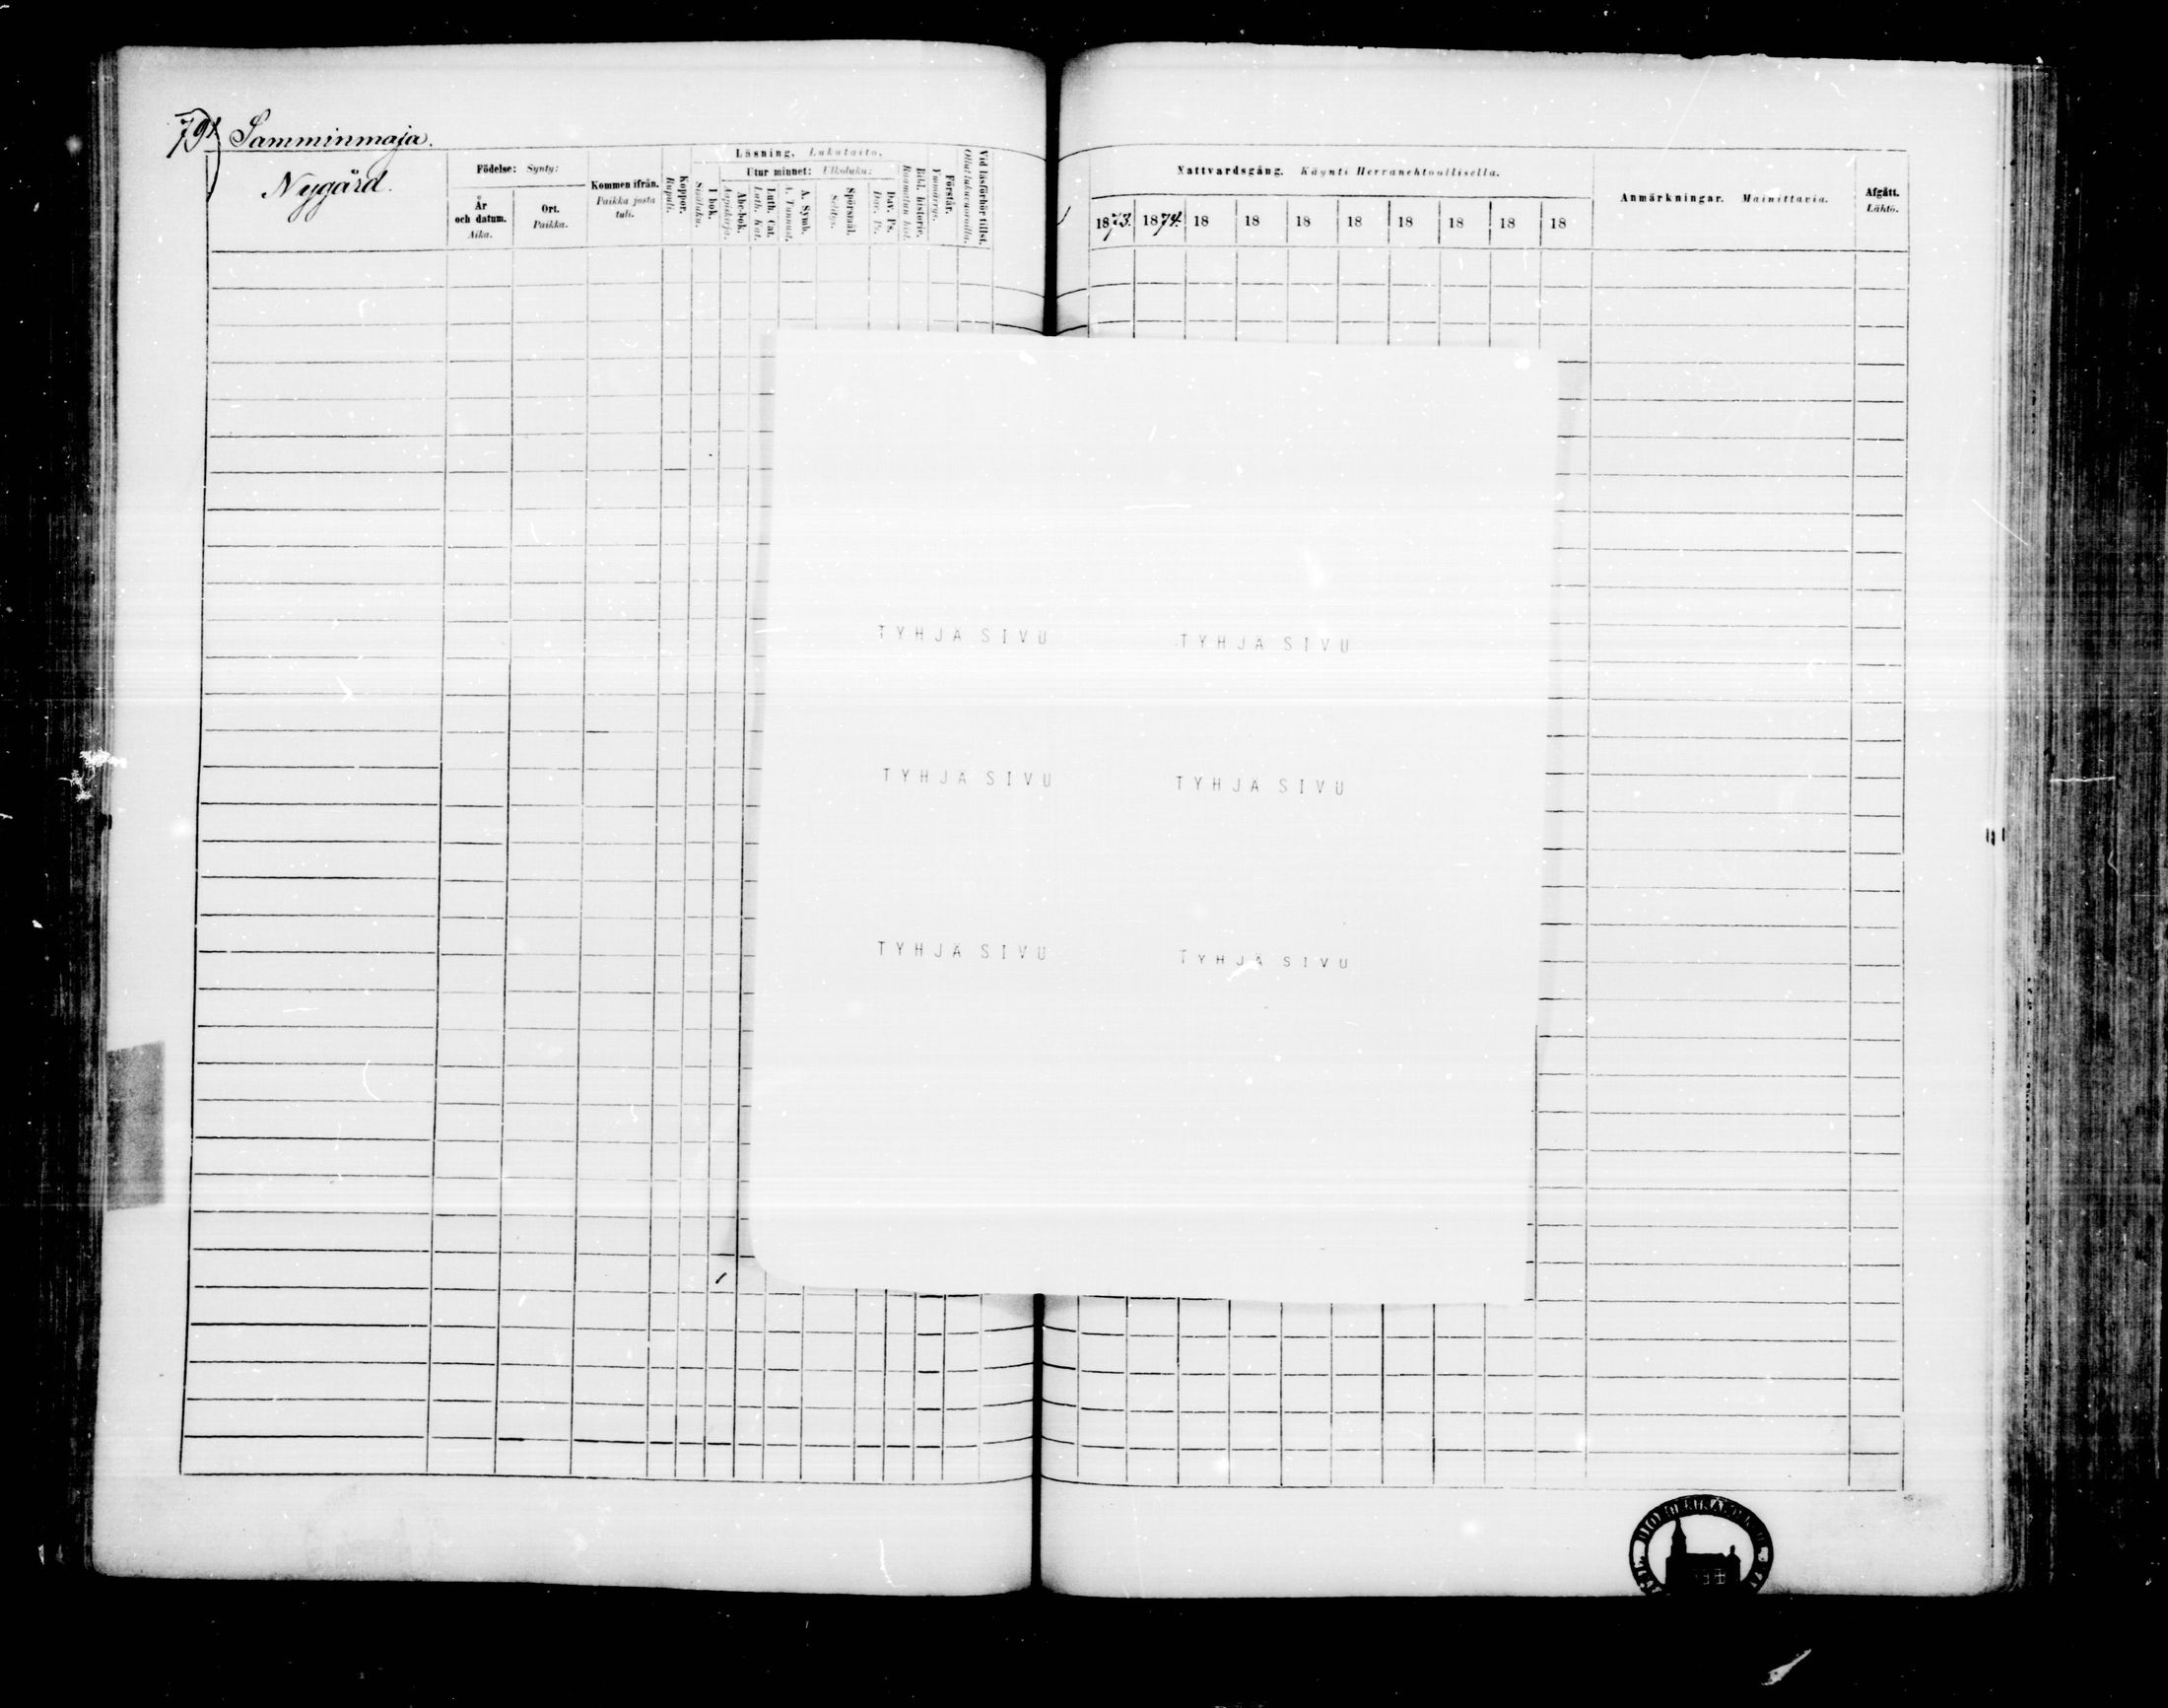 791 Samminmaja.
Nygård.
Födelse: Synty:
År och datum. Aika.
Ort. Paikka.
Kommen ifrån. Paikka josta tuli.
Koppor. Rupuli.
Läsning. Lukutaito.
I bok. Sisäluku.
Utur minnet: Ulkoluku:
Abc-bok. Aapiskirja.
Luth. Cat. Luth. Kat.
A. Symb. A. Tunnust.
Spörsmål. Selitys.
Dav. Ps. Dav. Ps.
Bibl. historie. Raamatun hist.
Förstår. Ymmärrys.
Vid läsförhör tillst. Ollut lukuvuoroilla.
Nattvardsgång. Käynti Herranehtoollisella.
1873. 1874. 18 18 18 18 18 18 18 18
Anmärkningar. Mainittavia.
Afgått. Lähtö.
TYHJÄ SIVU TYHJÄ SIVU
TYHJÄ SIVU TYHJÄ SIVU
TYHJÄ SIVU TYHJÄ SIVU